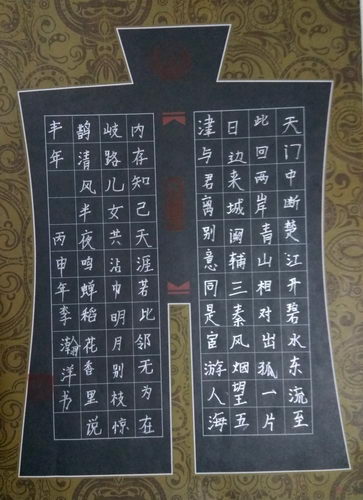 天门中断楚江开碧水东流至
此回两岸青山相对出孤一片
日边来城阙辅三秦风烟望五
津与君离别意同是宦游人海
内存知己天涯若比邻无为在
岐路儿女共沾巾明月别枝惊
鹊清风半夜鸣蝉稻花香里说
丰年 丙申年李瀚洋书